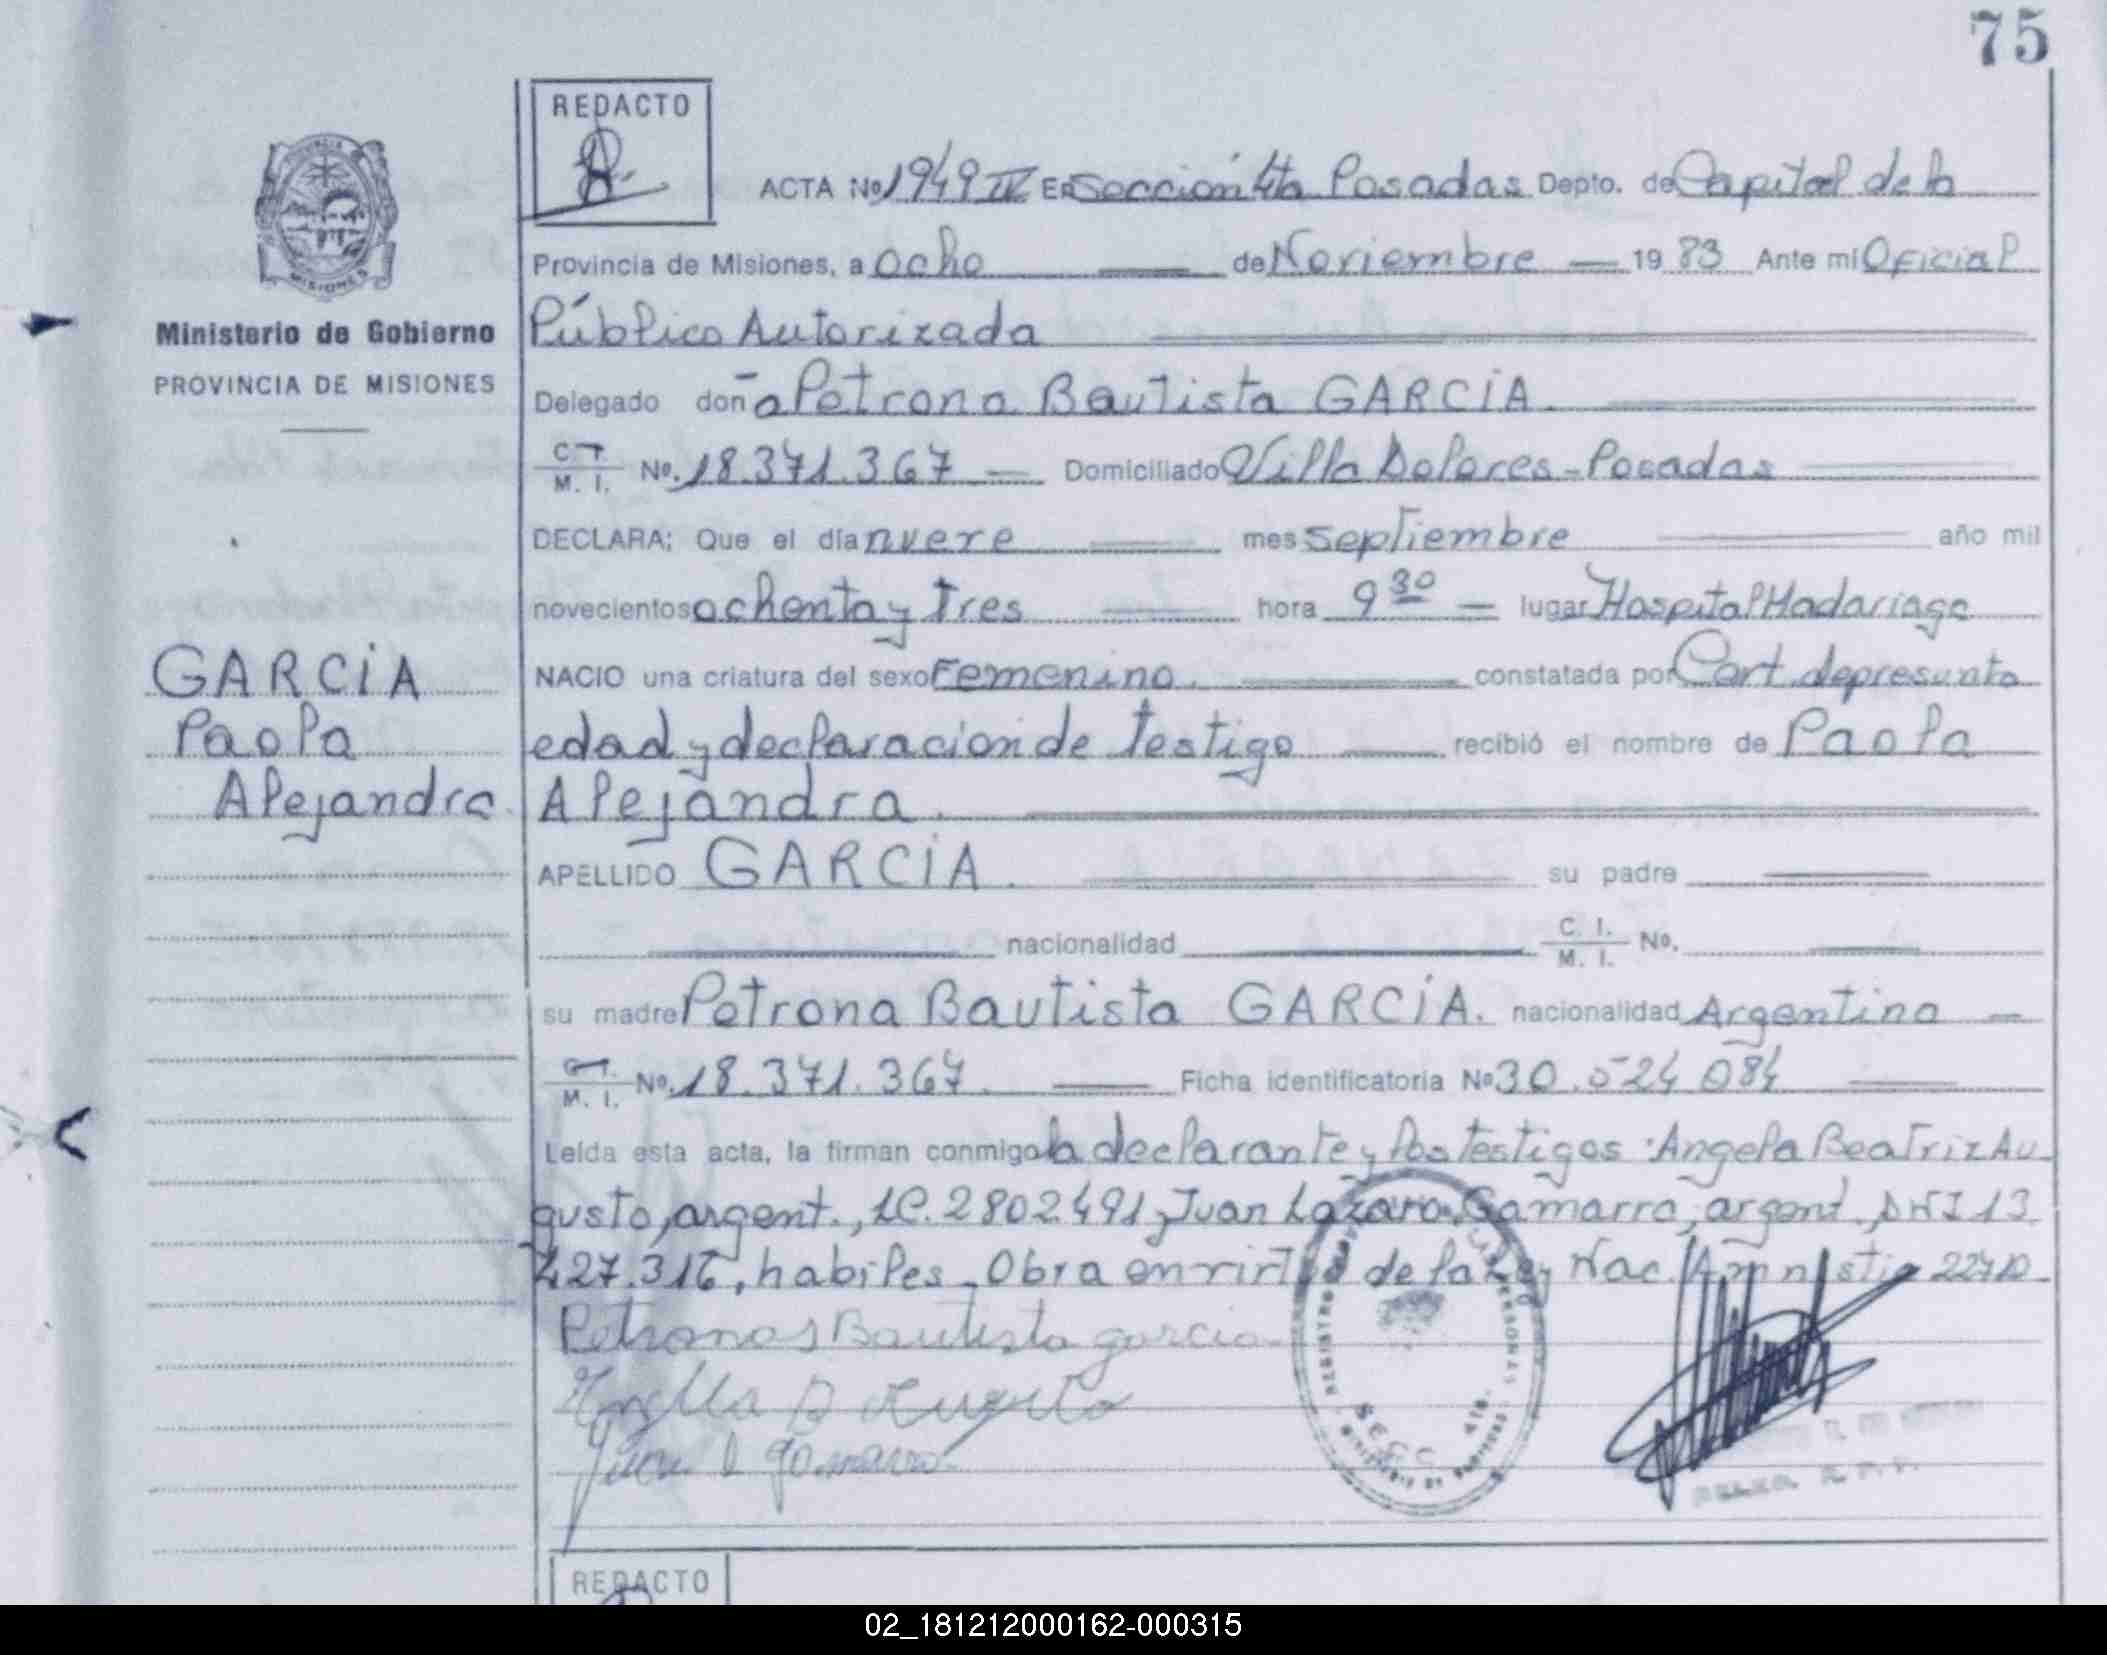 75
REDACTO
ACTA Nº 1949 IV En Sección 4ta Posadas Depto. de Capital de la
Provincia de Misiones, a ocho de Noviembre 19 83 Ante mi Oficial
Ministerio de Gobierno
Público Autorizada
PROVINCIA DE MISIONES
Delegado doña Petrona Bautista GARCIA.
C. I. M. I. Nº. 18.371.367 Domiciliado Villa Dolores - Posadas
DECLARA: Que el día nueve mes septiembre año mil
novecientos ochenta y tres hora 9 30 lugar Hospital Madariaga
GARCIA
NACIO una criatura del sexo Femenino. constatada por Cert. de presunta
Paola
edad y declaracion de testigo recibió el nombre de Paola
Alejandra.
Alejandra.
APELLIDO GARCIA. su padre
nacionalidad C. I. M. I. Nº.
su madre Petrona Bautista GARCIA. nacionalidad Argentina
C. I. M. I. Nº. 18.371.367. Ficha identificatoria Nº 30.524.084
Leída esta acta, la firman conmigo la declarante y los testigos: Angela Beatriz Au
gusto, argent., LC. 2802491 y Juan Lazaro Gamarra, argent. DNI 13
427.316, habiles. Obra en virtud de la Ley Nac. Amnistia
Petrona Bautista garcia
Juan L gamarra
SECC. 4ta.
REDACTO
02_181212000162-000315